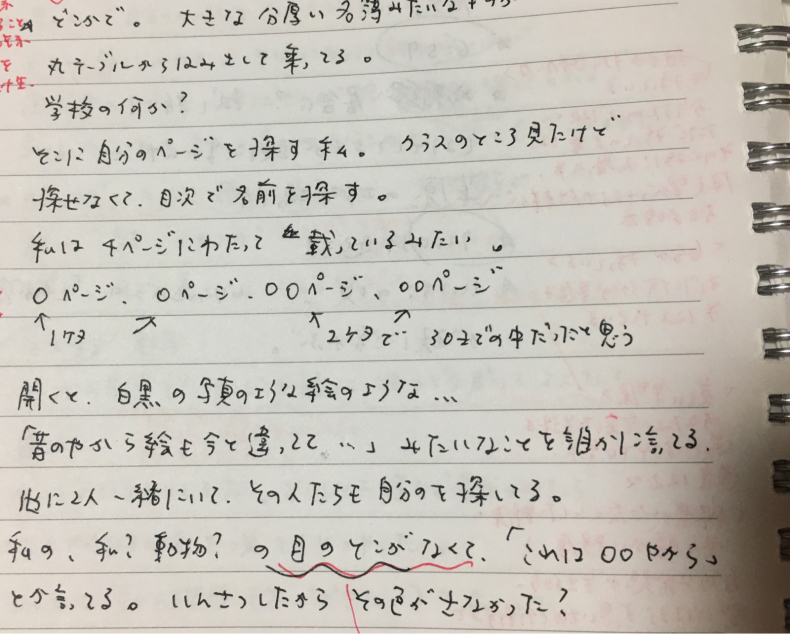 どこかで。 大きな 分厚い 名簿みたいな
丸テーブルから はみ出して 乗ってる。
学校の何か?
そこに 自分のページを 探す 私。 クラスのところ 見たけど
探せなくて、目次で 名前を探す。
私は 4ページにわたって 載っているみたい。
○ページ、○ページ、○○ページ、○○ページ
↑1ケタ ↑2ケタで… 30までの中だったと思う
開くと、白黒の 写真のような 絵のような…
「昔のやから 絵も 今と 違ってて …」 みたいなことを 誰かに言ってる。
他に2人 一緒にいて、その人たちも 自分のを 探してる。
私の、私? 動物? の 目のとこがなくて、「これは ○○やから」
とか言ってる。 いんさつしたから その色がでなかった?